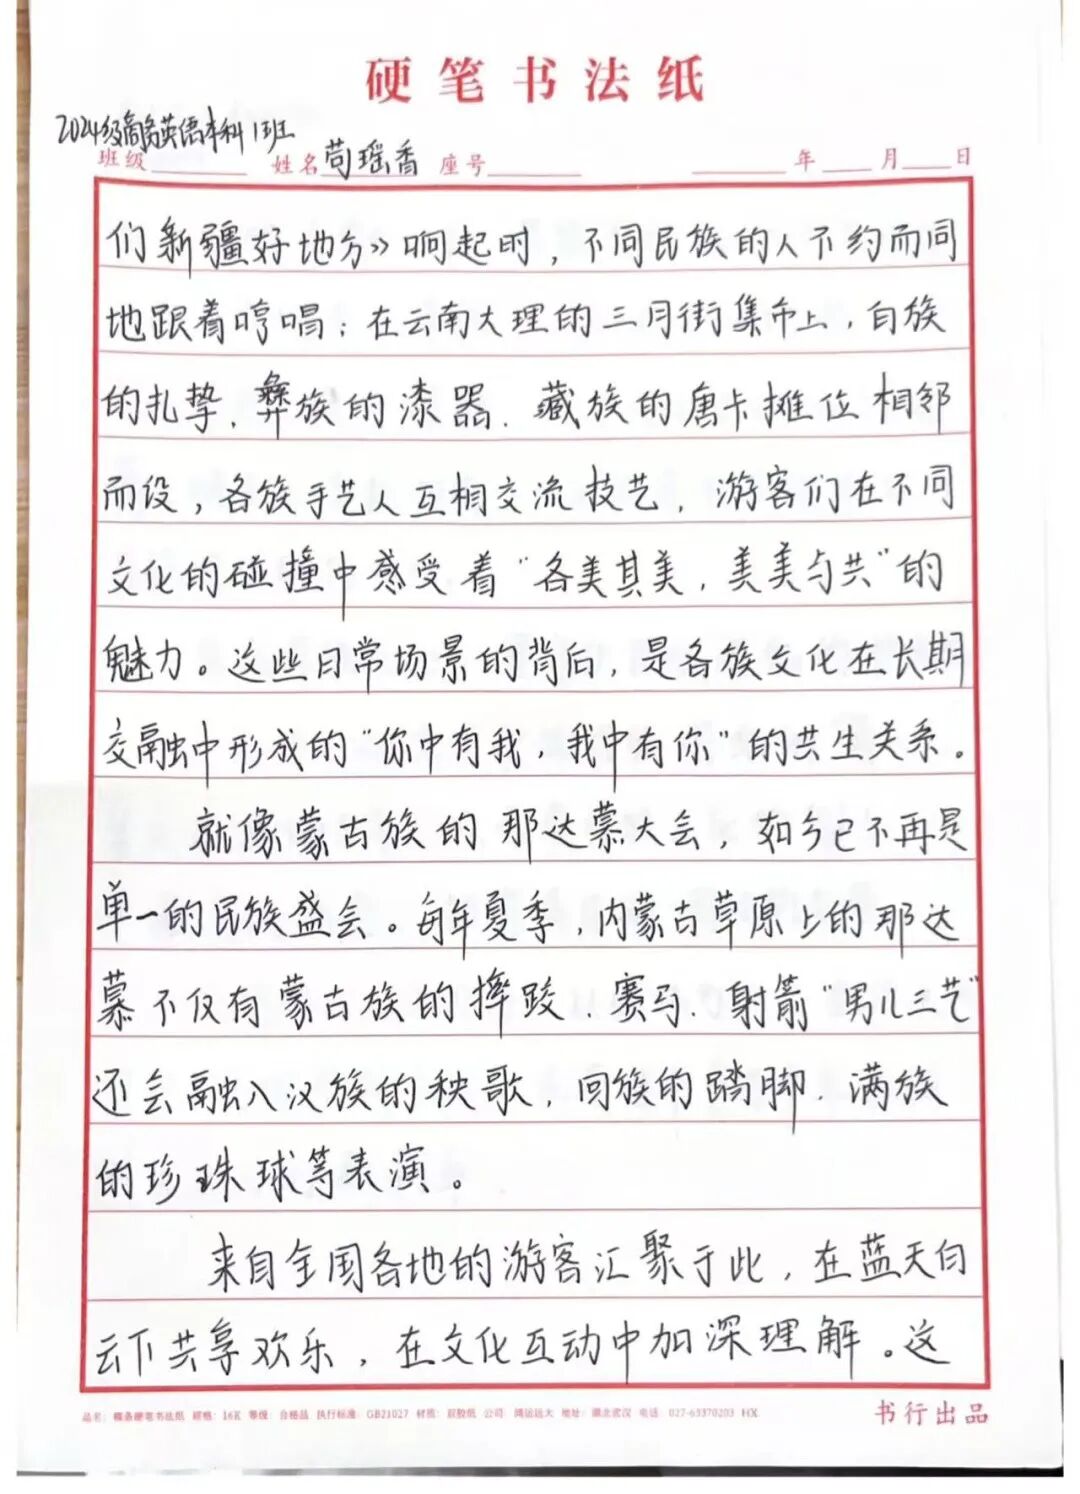 硬笔书法纸
2024级商务英语本科1班
班级 姓名 苟瑶香 座号 年 月 日
们新疆好地方》响起时，不同民族的人不约而同
地跟着哼唱；在云南大理的三月街集市上，白族
的扎挚、彝族的漆器、藏族的唐卡摊位相邻
而设，各族手艺人互相交流技艺，游客们在不同
文化的碰撞中感受着“各美其美，美美与共”的
魅力。这些日常场景的背后，是各族文化在长期
交融中形成的“你中有我，我中有你”的共生关系。
就像蒙古族的那达慕大会，如今已不再是
单一的民族盛会。每年夏季，内蒙古草原上的那达
慕不仅有蒙古族的摔跤、赛马、射箭“男儿三艺”
还会融入汉族的秧歌，回族的踏脚、满族
的珍珠球等表演。
来自全国各地的游客汇聚于此，在蓝天白
云下共享欢乐，在文化互动中加深理解。这
品名：横条硬笔书法纸 规格：16K 等级：合格品 执行标准：GB21027 材质：双胶纸 公司：鸿运远大 地址：湖北武汉 电话：027-63370203 HX
书行出品